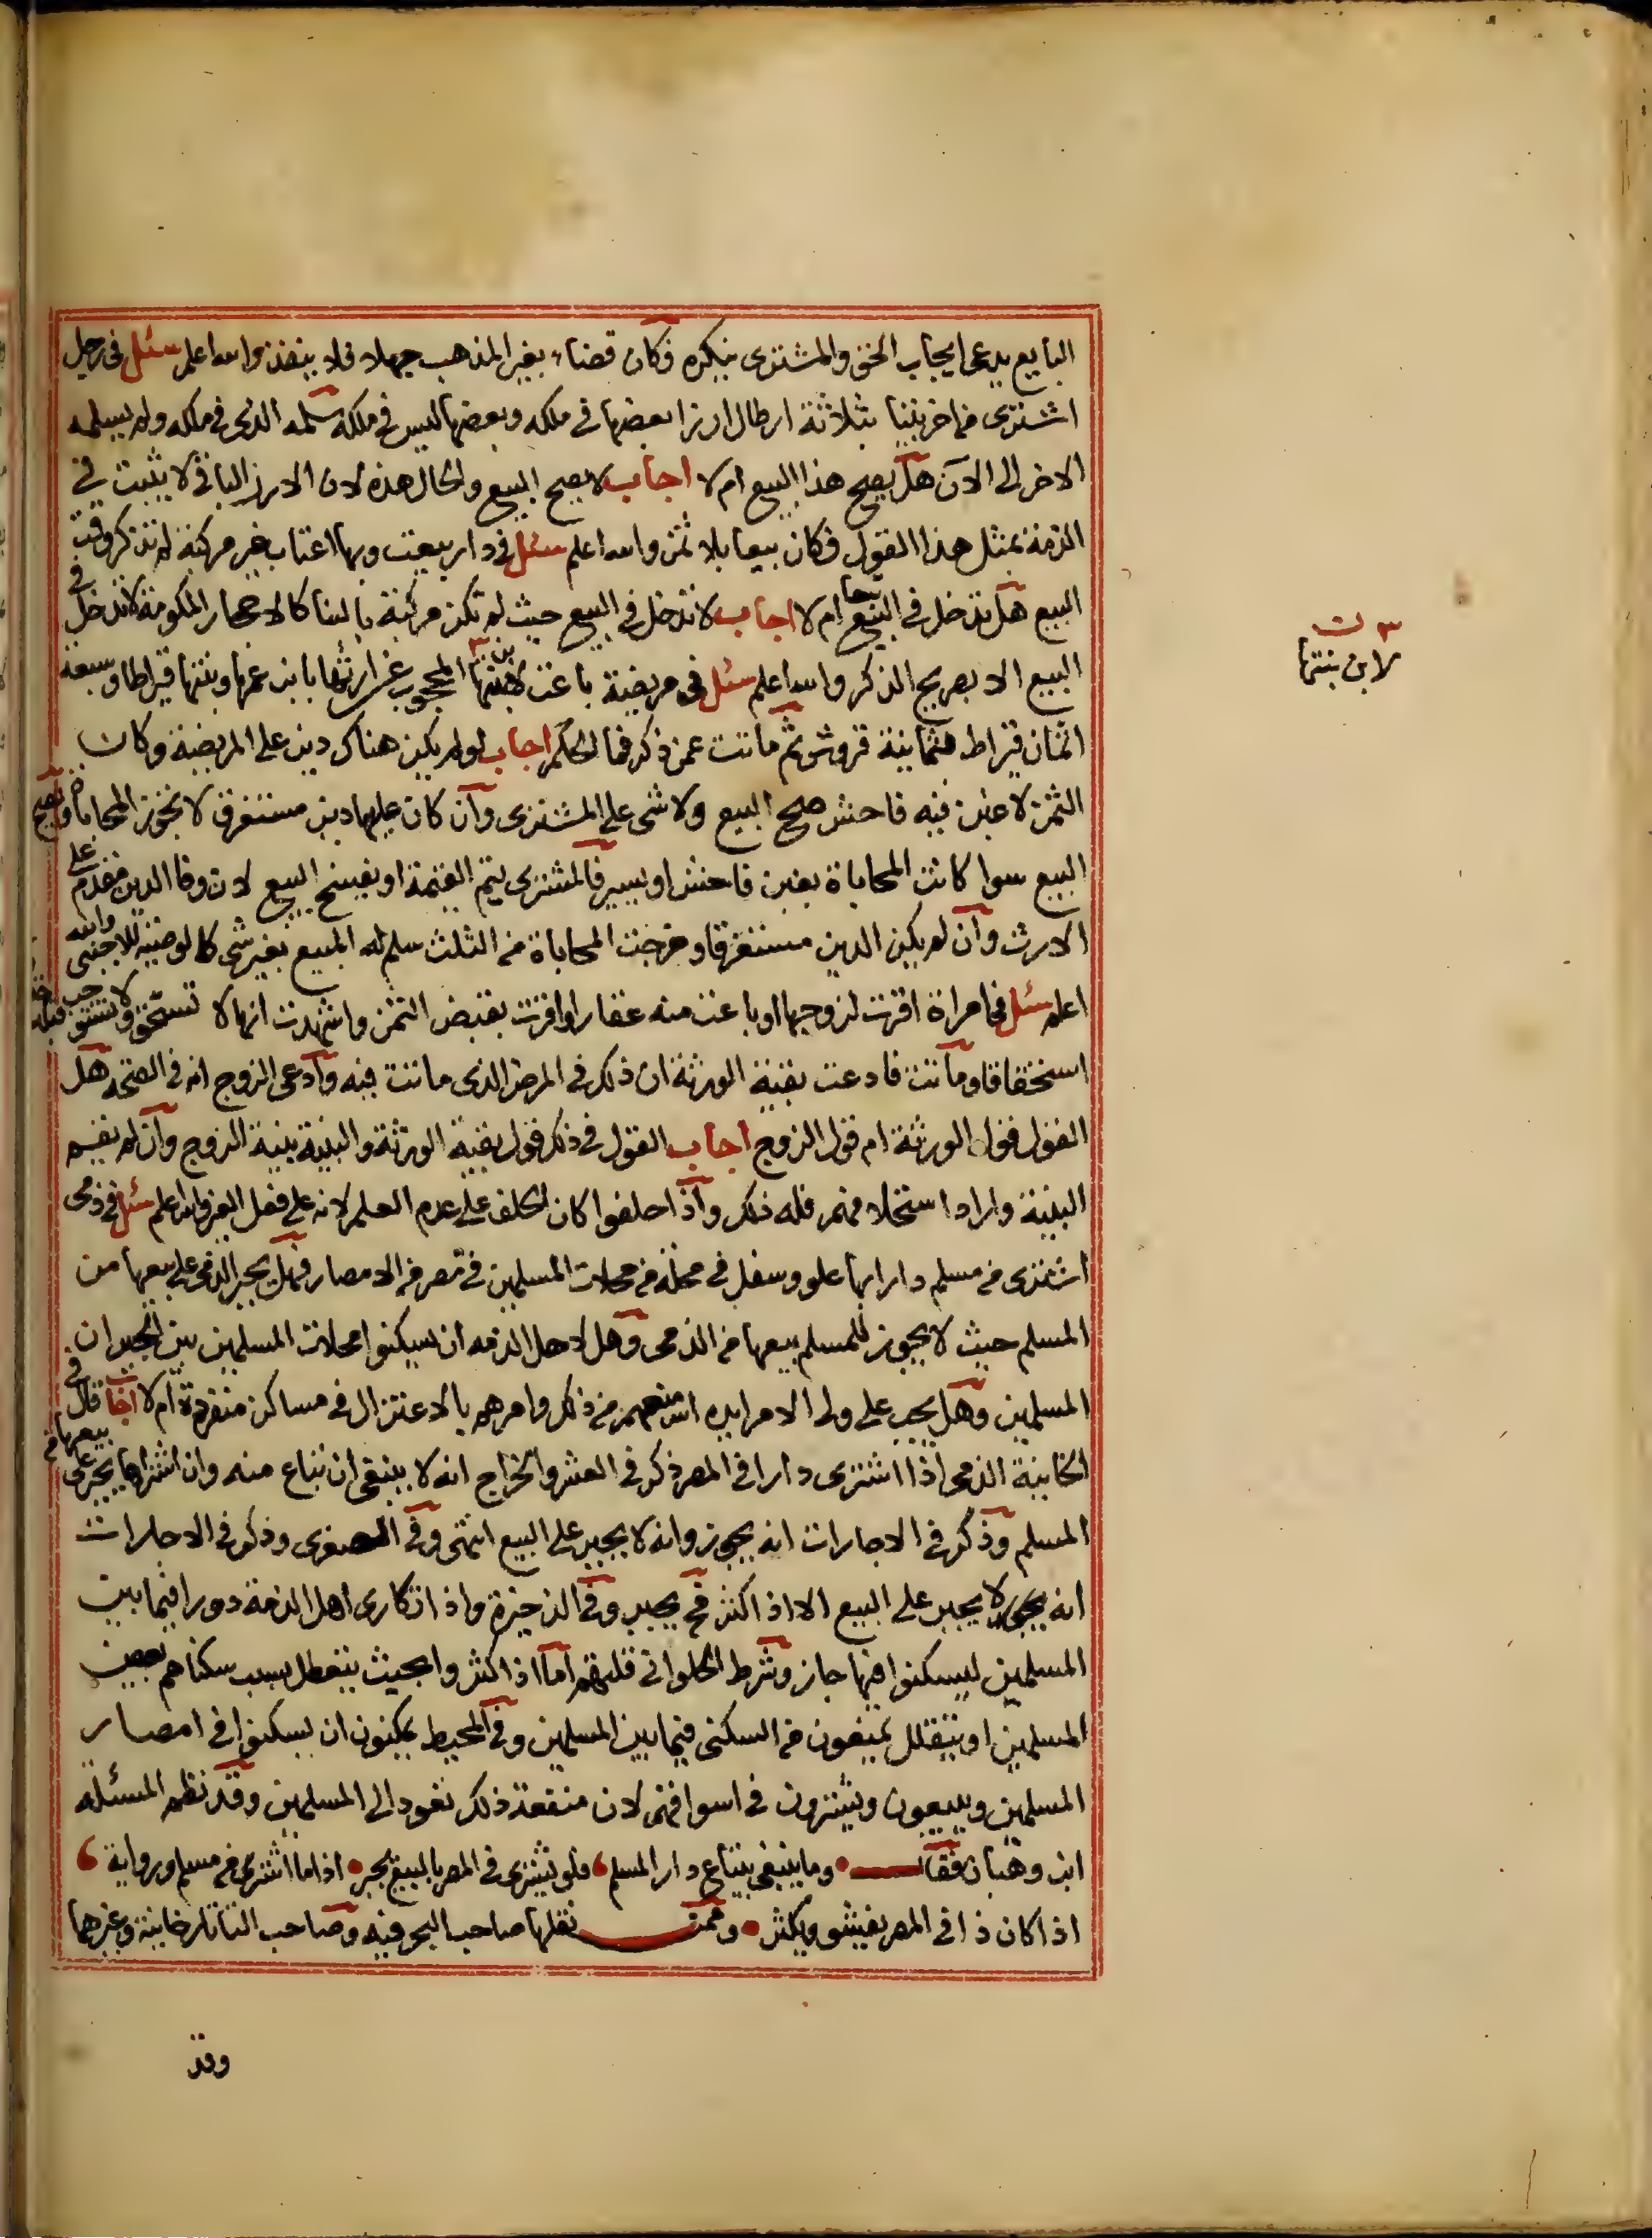 البايع يدعى ايجاب الحق والمشترى ينكره فكان قضاء بغير المذهب جهلا فلا ينفذ والله اعلم سئل فى رجل
اشترى من اخر بيتا بثلاثة ارطال ارزا بعضها فى ملكه وبعضها ليس فى ملكه سلمه الذى فى ملكه ولم يسلمه
الاخر الى الآن هل يصح هذا البيع ام لا اجاب لا يصح البيع والحال هذه لان الارز الباقى لا يثبت فى
الذمة بمثل هذا القول فكان بيعا بلا ثمن والله اعلم سئل فى دار بيعت وبها اعتاب غير مركبة لم تذكر وقت
البيع هل تدخل فى البيع تبعا ام لا اجاب لا تدخل فى البيع حيث لم تكن مركبة بالبنا كالاحجار المكومة لا تدخل فى
البيع الا بصريح الذكر والله اعلم سئل فى مريضة باعت لابن بنتها المحجوب عن ارثها بابن عمها وبنتها قيراطا وسبعة
اثمان قيراط بثمانية قروش ثم ماتت عمن ذكر فما الحكم اجاب لو لم يكن هناك دين على المريضة وكان
الثمن لا غبن فيه فاحش صح البيع ولا شى على المشترى وان كان عليها دين مستغرق لا تجوز المحاباة ويصح
البيع سوا كانت المحاباة بغبن فاحش او يسير فالمشترى يتم القيمة او يفسخ البيع لان وفا الدين مقدم على
الارث وان لم يكن الدين مستغرقا وخرجت المحاباة من الثلث سلم له المبيع بغير شى كالوصية للاجنبى والله
اعلم سئل فى امراة اقرت لزوجها او باعت منه عقارا واقرت بقبض الثمن واشهدت انها لا تستحق ولا تستوجب قبله
استحقاقا وماتت فادعت بقية الورثة ان ذلك فى المرض الذى ماتت فيه وادعى الزوج انه فى الصحة هل
القول قول الورثة ام قول الزوج اجاب القول فى ذلك قول بقية الورثة والبينة بينة الزوج وان لم يقم
البينة واراد استحلافهم فله ذلك واذا حلفوا كان الحلف على عدم العلم لانه على فعل الغير والله اعلم سئل فى ذمى
اشترى من مسلم دارا بها علو وسفل فى محلة من محلات المسلمين فى مصر من الامصار فهل يجبر الذمى على بيعها من
المسلم حيث لا يجوز للمسلم بيعها من الذمى وهل لاهل الذمه ان يسكنوا محلات المسلمين بين الجيران
المسلمين وهل يجب على ولى الامر ايده الله منعهم من ذلك وامرهم بالاعتزال فى مساكن منفردة ام لا اجاب قال فى
الخانية الذمى اذا اشترى دارا فى المصر ذكر فى العشر والخراج انه لا ينبغى ان تباع منه وان اشتراها يجبر على بيعها من
المسلم وذكر فى الاجارات انه يجوز وانه لا يجبر على البيع انتهى وفى الصغرى وذكر فى الاجارات
انه يجوز ولا يجبر على البيع الا اذا كثر فح يجبر وفى الذخيرة واذا تكارى اهل الذمة دورا فيما بين
المسلمين ليسكنوا فيها جاز وشرط الحلوانى قلتهم اما اذا كثروا بحيث يتعطل بسبب سكناهم بعض
المسلمين او يتقلل يمنعون من السكنى فيما بين المسلمين وفى المحيط يمكنون ان يسكنوا فى امصار
المسلمين ويبيعون ويشترون فى اسواقهم لان منفعة ذلك تعود الى المسلمين وقد نظم المسئلة
ابن وهبان فقال وما ينبغى يبتاع دار المسلم فلو يشترى فى المصر بالبيع يجبر اذا ما اشترى من مسلم ورواية
اذا كان ذا فى المصر يفشو ويكثر وممن نقلها صاحب البحر فيه وصاحب التاتارخانية وغيرهما
وقد
لابن بنتها